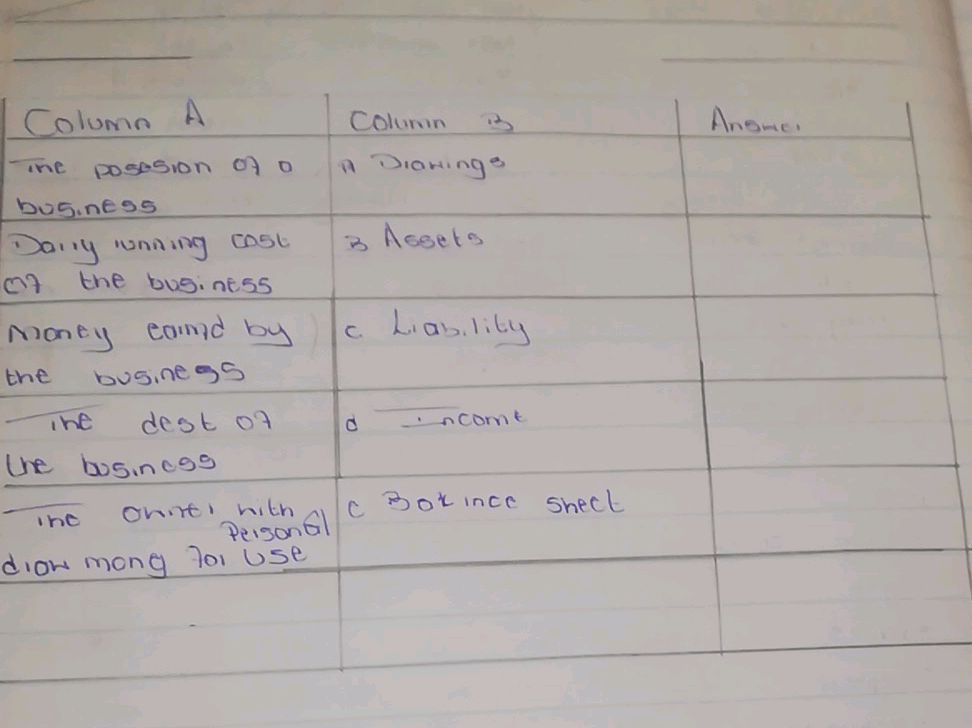 Column A Column B Answer
The posesion of a A Drawings
business
Daily running cost B Assets
of the business
Money earnd by C Liability
the business
The dest of d income
the business
The owner with C Balance sheet
Personal
draw mony for use